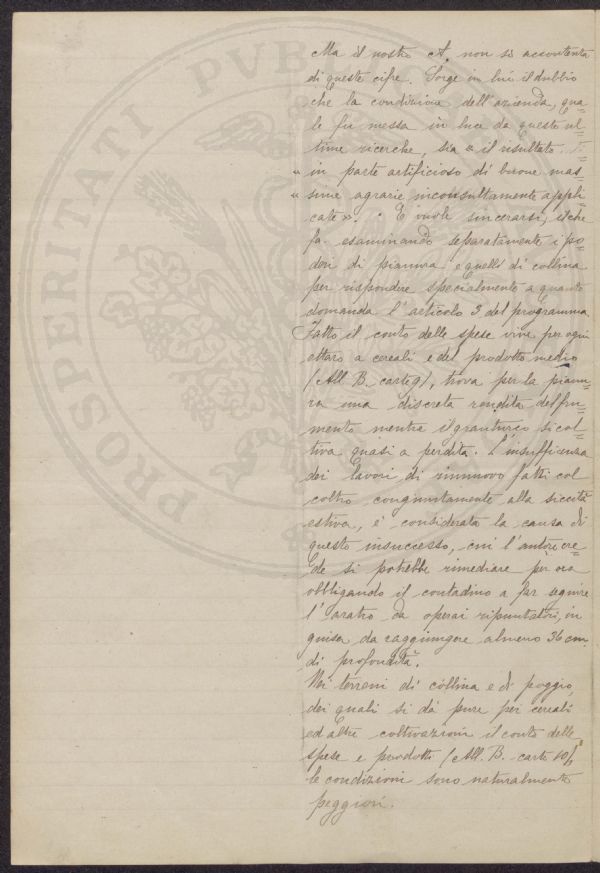 Ma il nostro A. non si accontenta
di queste cifre. Sorge in lui il dubbio
che la condizione dell'azienda, qua=
le fu messa in luce da queste ul=
time ricerche, sia « il resultato
« in parte artificioso di buone mas=
« sime agrarie inconsultamente appli=
cate ». E vuole sincerarsi, il che
fa esaminando separatamente i po=
deri di pianura e quelli di collina
per rispondere specialmente a quanto
domanda l'articolo 3 del programma.
Fatto il conto delle spese vive per ogni
ettaro a cereali e del prodotto medio
(All. B. carte 9), trova per la pianu=
ra una discreta rendita del fru=
mento mentre il granturco si col=
tiva quasi a perdita. L'insufficienza
dei lavori di rinnuovo fatti col
coltro congiuntamente alla siccità
estiva, è considerata la causa di
questo insuccesso, cui l'autore cre=
de si potrebbe rimediare per ora
obbligando il contadino a far seguire
l'aratro da operai ripuntatori, in
guisa da raggiungere almeno 36 cm.
di profondità.
Nei terreni di collina e di poggio,
dei quali si dà pure per cereali
ed altre coltivazioni il conto delle
spese e prodotti (All. B. carte 10),
le condizioni sono naturalmente
peggiori.
PROSPERITATI PVBL